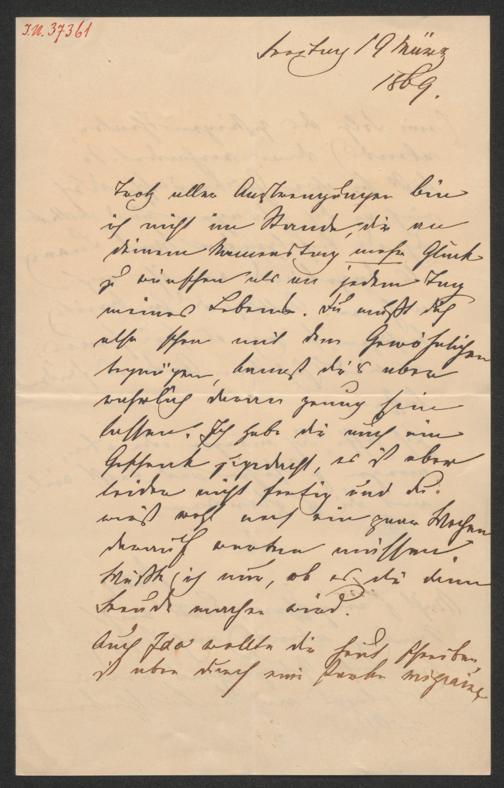 I.N. 37361
Freitag 19 März
1869.
Trotz allen Anstrengungen bin
ich nicht im Stande dir an
deinem Namenstag mehr Glück
zu wünschen als an jedem Tag
meines Lebens. Du mußt dich
also schon mit dem Gewöhnlichen
begnügen, kannst dir's aber
wahrlich daran genug sein
lassen. Ich habe dir auch ein
Geschenk zugedacht, es ist aber
leider nicht fertig und du
wirst wohl noch ein paar Wochen
darauf warten müssen
Wüßte ich nur, ob es dir denn
Freude machen wird.
Auch Ida wollte dir heut schreiben,
ist aber durch eine starke Migraine